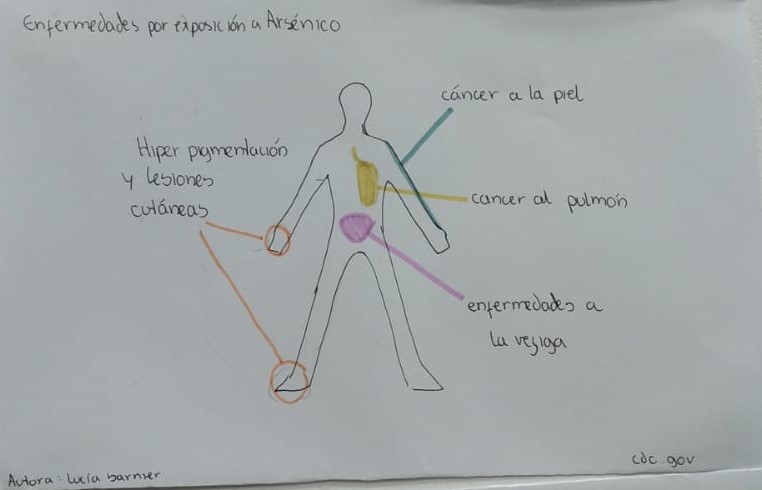 Enfermedades por exposición a Arsénico
cáncer a la piel
Hiper pigmentación
y lesiones
cutáneas
cancer al pulmón
enfermedades a
la vejiga
cdc.gov
Autora: Lucía barnier